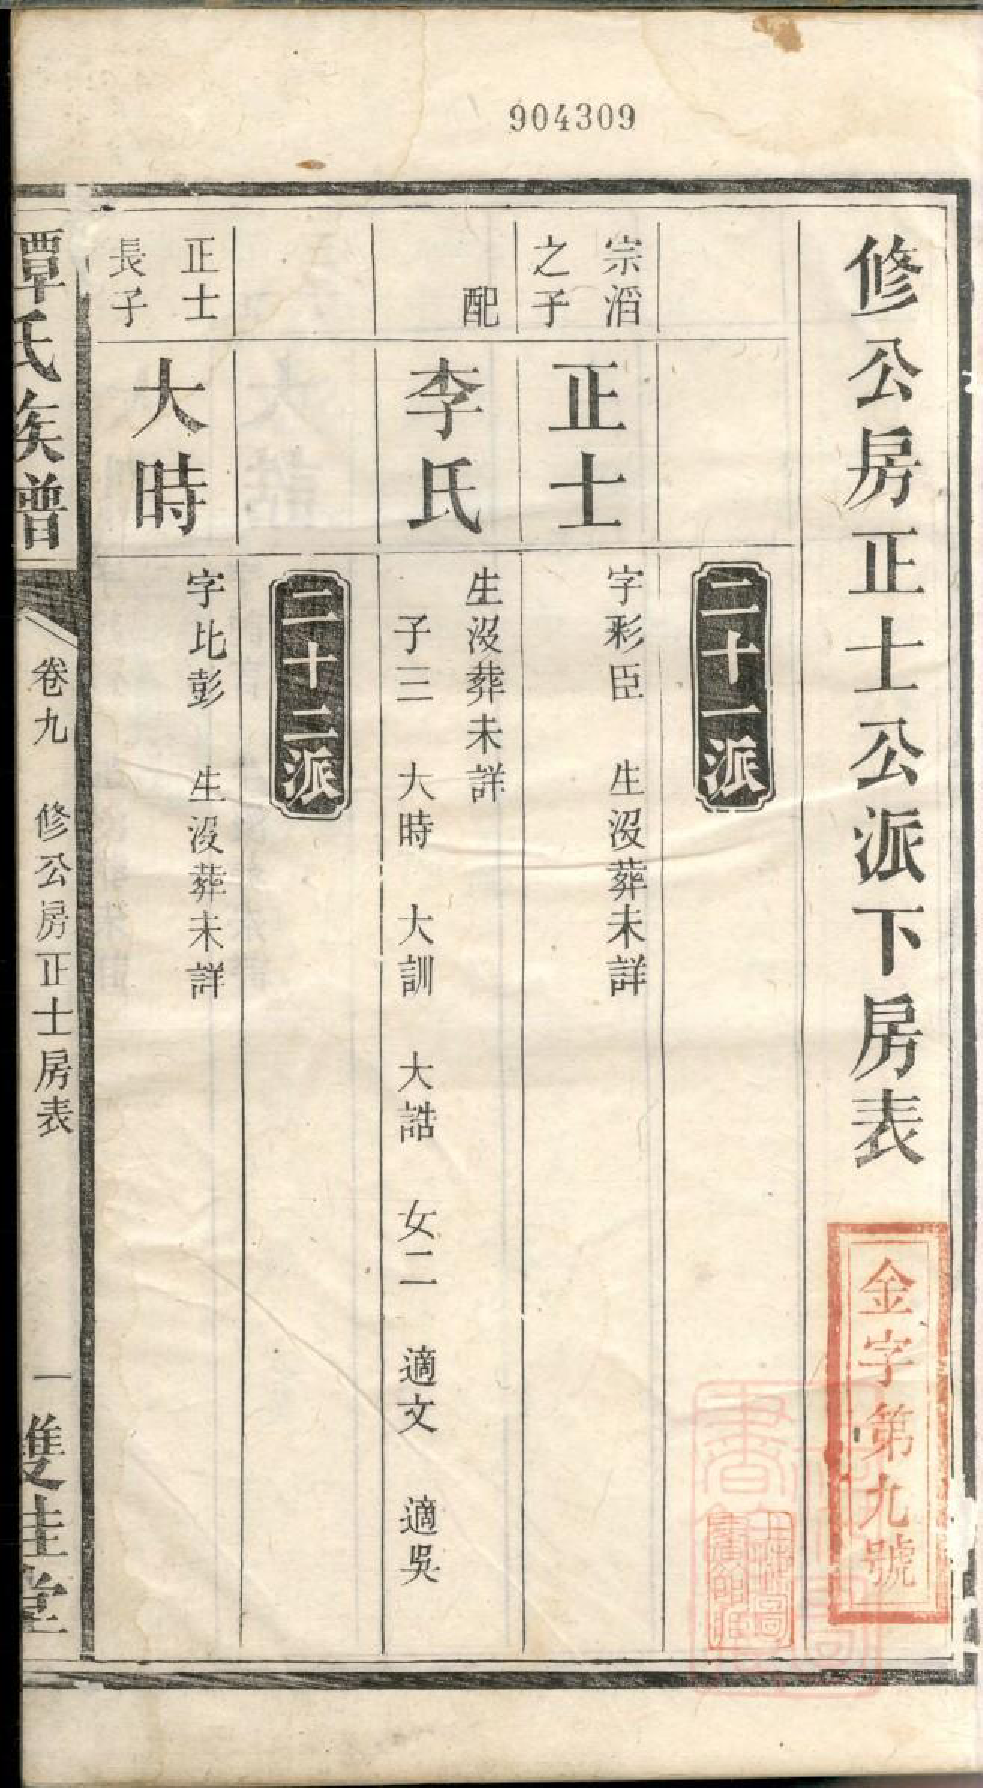 904309
修公房正士公派下房表
金字第九號
二十一派
宗滔之子
正士
字彩臣 生沒葬未詳
配
李氏
生沒葬未詳
子三 大時 大訓 大誥 女二 適文 適吳
二十二派
正士長子
大時
字比彭 生沒葬未詳
譚氏族譜
卷九 修公房正士房表
一
雙桂堂